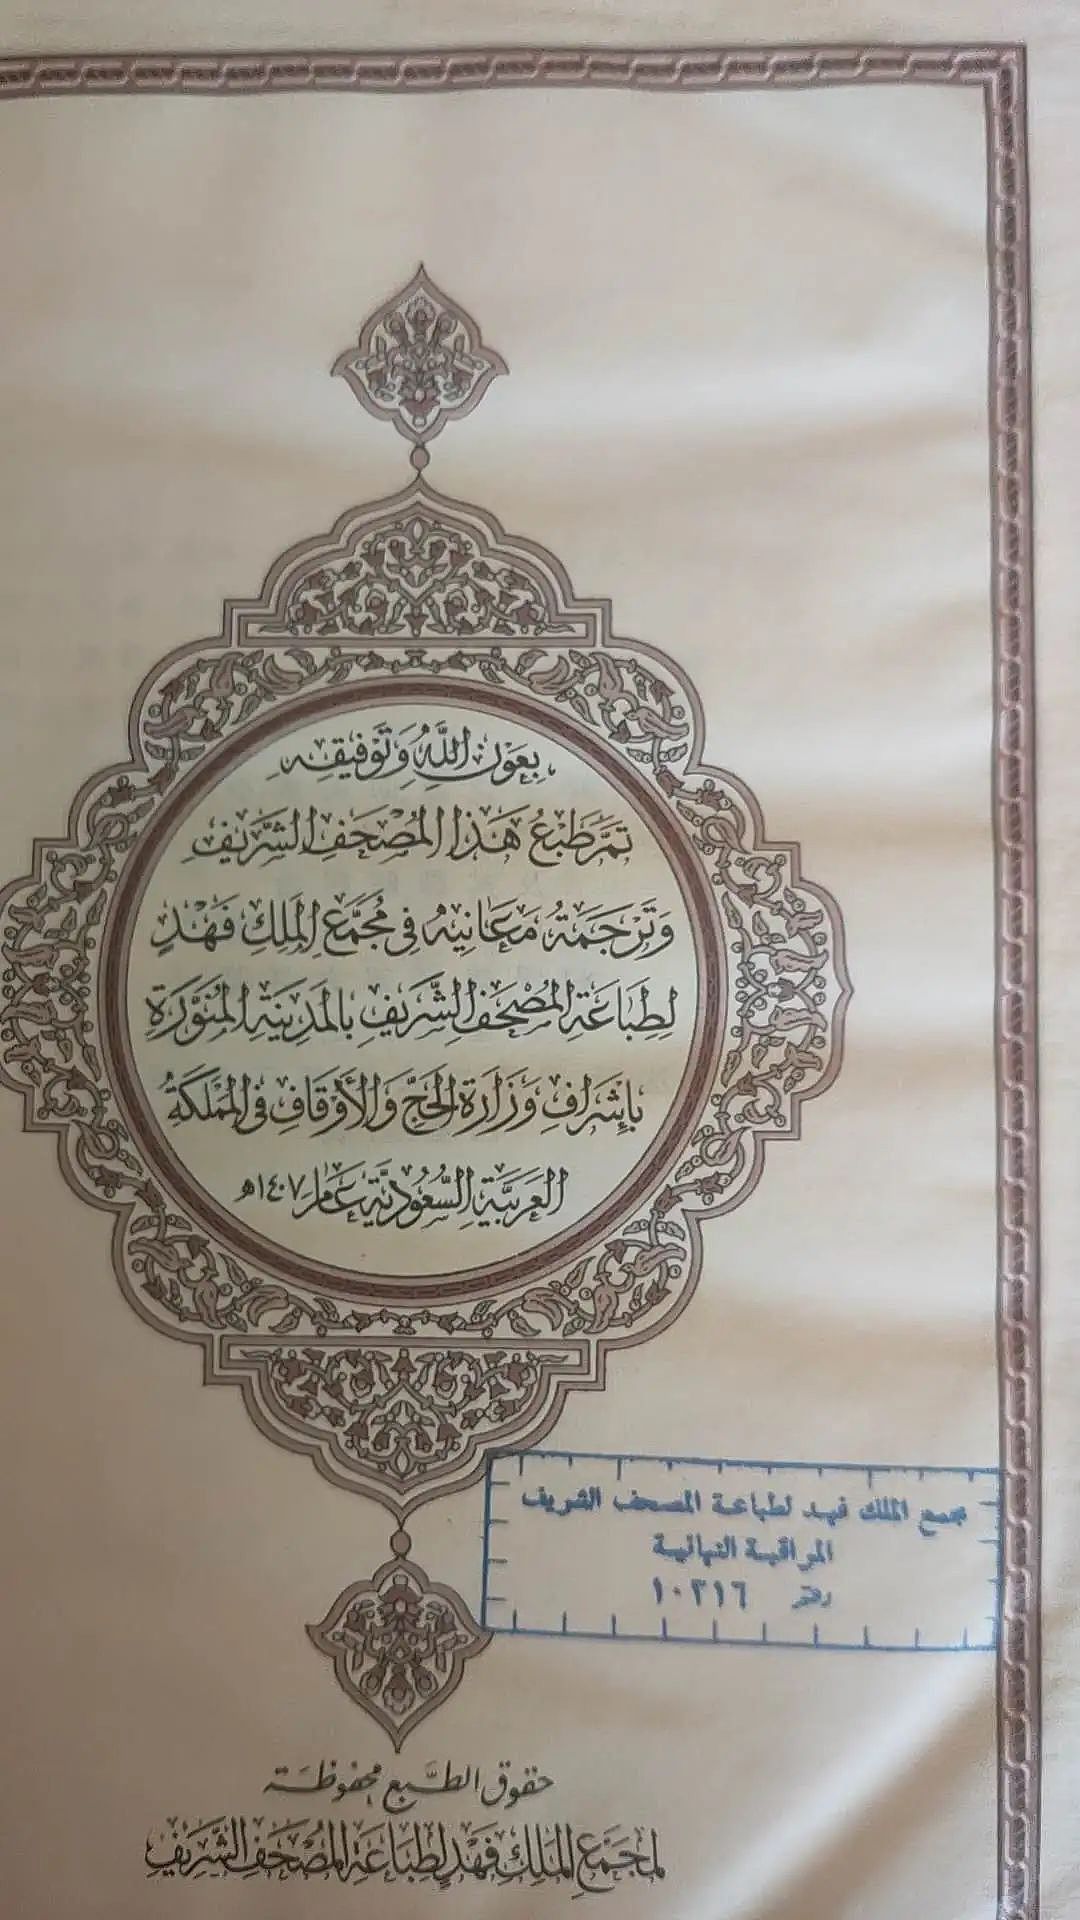 بِعَوْنِ اللَّهِ وَتَوْفِيقِهِ
تَمَّ طَبْعُ هَذَا الْمُصْحَفِ الشَّرِيفِ
وَتَرْجَمَةُ مَعَانِيهِ فِي مُجَمَّعِ الْمَلِكِ فَهْدٍ
لِطِبَاعَةِ الْمُصْحَفِ الشَّرِيفِ بِالْمَدِينَةِ الْمُنَوَّرَةِ
بِإِشْرَافِ وَزَارَةِ الْحَجِّ وَالْأَوْقَافِ فِي الْمَمْلَكَةِ
الْعَرَبِيَّةِ السُّعُودِيَّةِ عَامَ ١٤٠٧هـ
مجمع الملك فهد لطباعة المصحف الشريف
المراقبة النهائية
رقم ١٠٣١٦
حقوق الطَّبع محفوظَة
لِمُجَمَّعِ الْمَلِكِ فَهْدٍ لِطِبَاعَةِ الْمُصْحَفِ الشَّرِيفِ